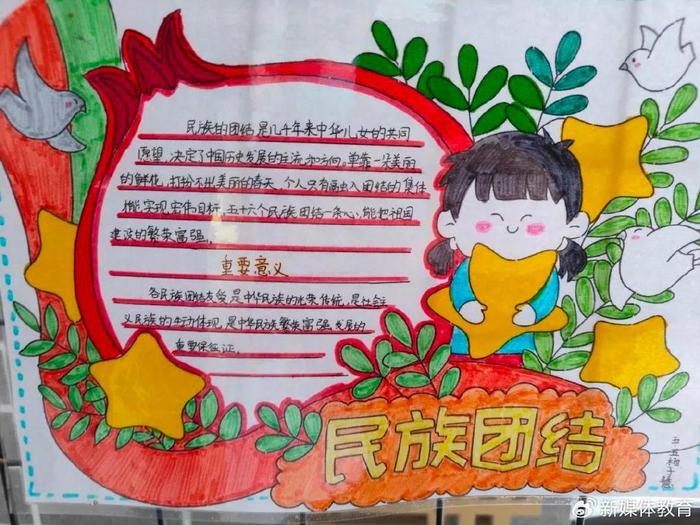 民族的团结是几千年来中华儿女的共同
愿望,决定了中国历史发展的主流和方向。单靠一朵美丽
的鲜花,打扮不出美丽的春天,个人只有融入团结的集体
才能实现宏伟目标,五十六个民族团结一条心,能把祖国
建设的繁荣富强。
重要意义
各民族团结友爱是中华民族的光荣传统,是社会主
义民族的生动体现,是中华民族繁荣富强发展的
重要保证。
民族团结
新媒体教育